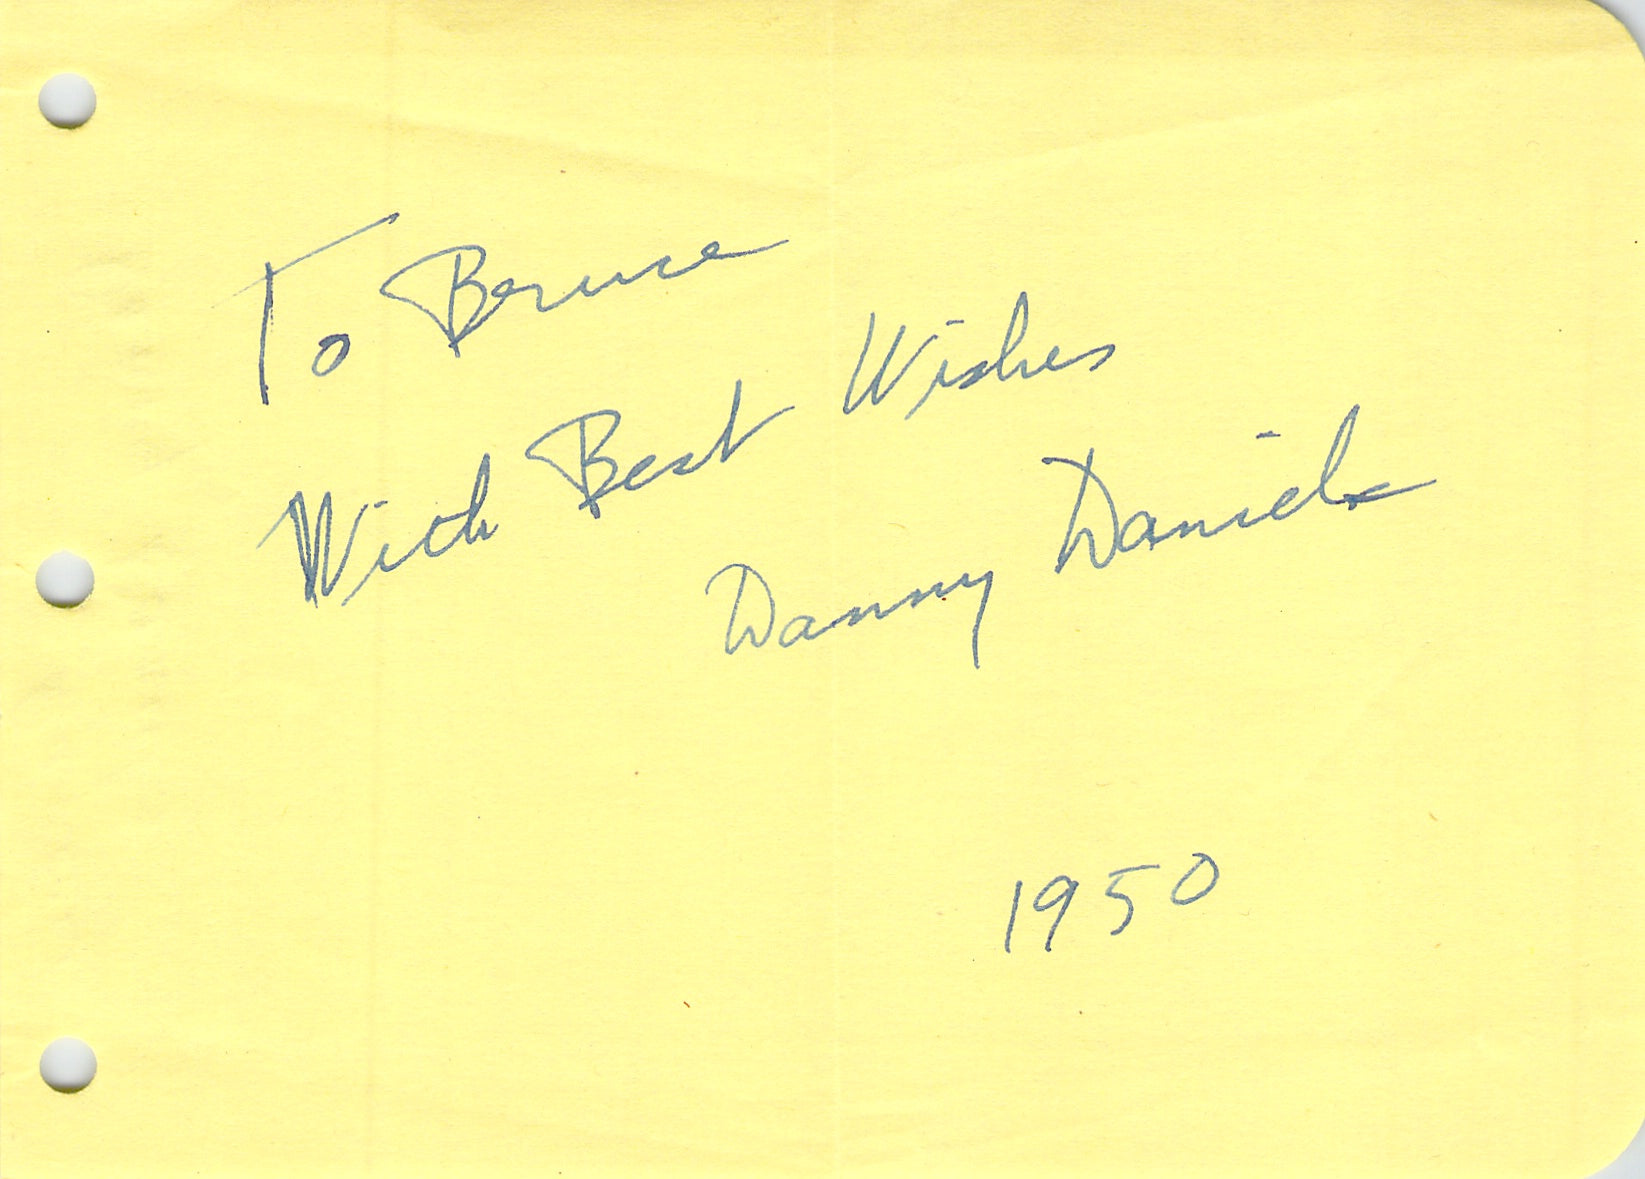 To Bruce
With Best Wishes
Danny Daniels
1950